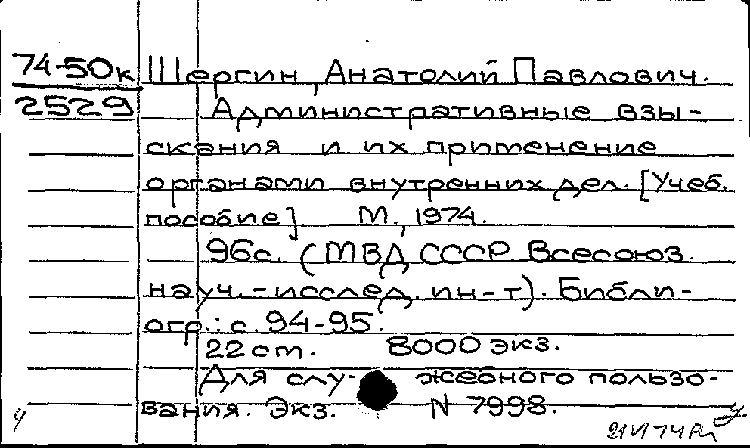 74-50к Шергин, Анатолий Павлович.
2529 Административные взы-
скания и их применение
органами внутренних дел. [Учеб.
пособие] М., 1974.
96с. (МВД СССР. Всесоюз.
науч.-исслед. ин-т). Библи-
огр.: с. 94-95.
22 см. 8000 экз.
Для слу- жебного пользо-
вания. Экз. N 7998.